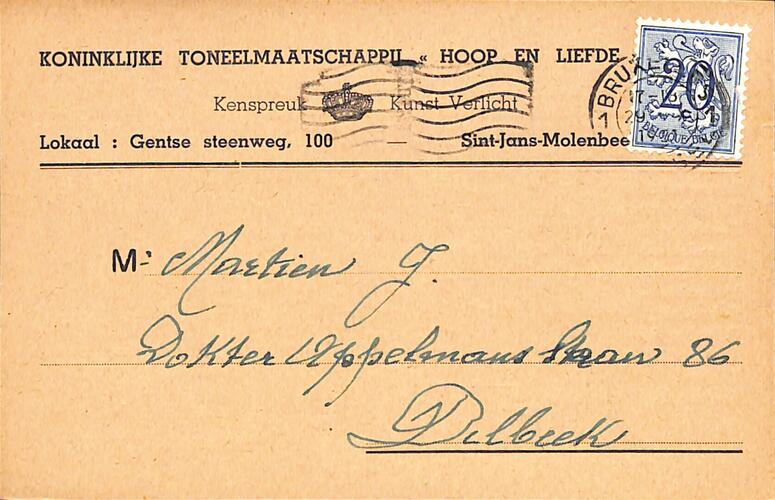 KONINKLIJKE TONEELMAATSCHAPPIJ « HOOP EN LIEFDE
Kenspreuk Kunst Verlicht
Lokaal : Gentse steenweg, 100 — Sint-Jans-Molenbee
20
BELGIQUE-BELGIE
BRUX
1
29
Mr Martien J.
Dokter Appelmans straat 86
Dilbeek